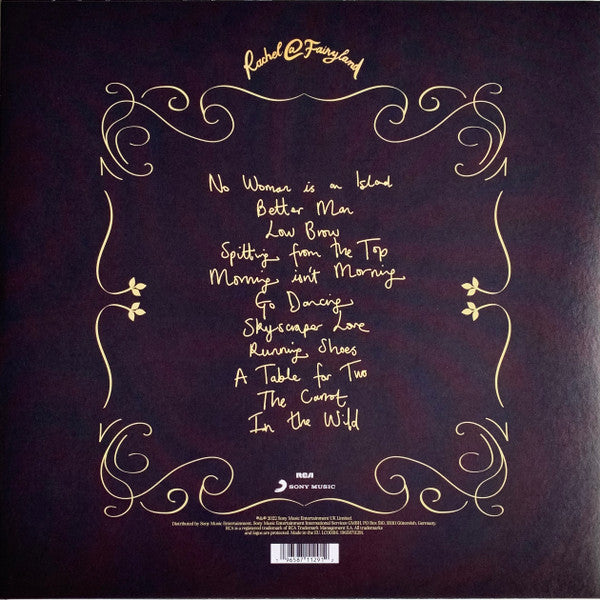 Rachel@Fairyland
No Woman is an Island
Better Man
Low Brow
Spitting from the Top
Morning isn't Morning
Go Dancing
Skyscraper Love
Running Shoes
A Table for Two
The Carrot
In the Wild
RCA
SONY MUSIC
℗&© 2022 Sony Music Entertainment UK Limited.
Distributed by Sony Music Entertainment. Sony Music Entertainment International Services GmbH, PO Box 510, 33311 Gütersloh, Germany.
RCA is a registered trademark of RCA Trademark Management S.A. All trademarks
and logos are protected. Made in the EU. LC00316. 19658711291.
1 96587 11291 2